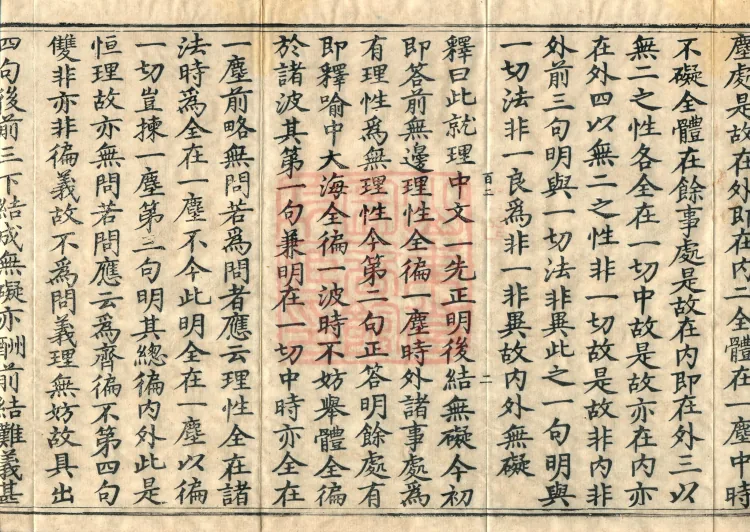 塵處是故在外即在內二全體在一塵中時
不礙全體在餘事處是故在內即在外三以
無二之性各全在一切中故是故亦在內亦
在外四以無二之性非一切故是故非內非
外前三句明與一切法非異此之一句明與
一切法非一良為非一非異故內外無礙
釋曰此就理中文一先正明後結無礙今初
即答前無邊理性全徧一塵時外諸事處為
有理性為無理性今第二句正答明餘處有
即釋喻中大海全徧一波時不妨舉體全徧
於諸波其第一句兼明在一切中時亦全在
一塵前略無問若為問者應云理性全在諸
法時為全在一塵不今此明全在一塵以徧
一切豈揀一塵第三句明其總徧內外此是
恒理故亦無問若問應云為齊徧不第四句
雙非亦非徧義故不為問義理無妨故具出
四句後前三下結成無礙亦酬前結難義甚
百二
二